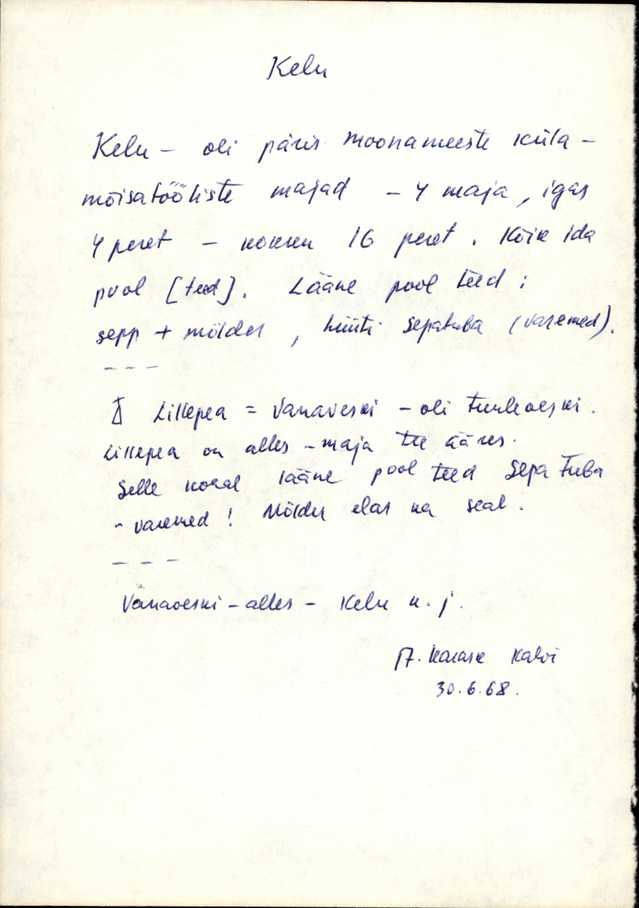 Kelu
Kelu – oli päris moonameeste küla –
mõisatööliste majad – 4 maja, igas
4 peret – kokku 16 peret. Kõik ida
pool [teed]. Lääne pool teed :
sepp + mölder, hüüti Sepatuba (varemed).
– – –
Lillepea = Vanaveski – oli tuuleveski.
Lillepea on alles – maja tee ääres.
Selle kohal lääne pool teed Sepa tuba
– varemed! Mölder elas ka seal.
– – –
Vanaveski – alles – Kelu k. j.
Kalvi
30.6.68.